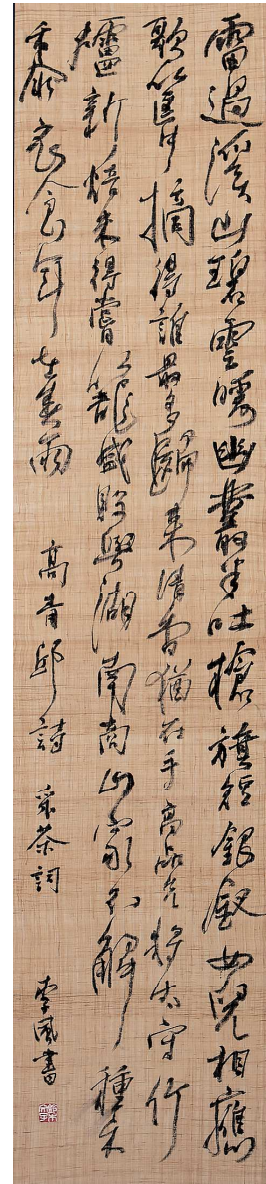 雷過溪山碧雲暖幽叢半吐槍旗短銀釵女兒相應
歌筐中摘得誰最多歸來清香猶在手高品先將太守竹
爐新焙未得嘗籠盛販與湖南商山家不解種禾
黍衣食年在春雨 高青邱詩 采茶詞 李風書